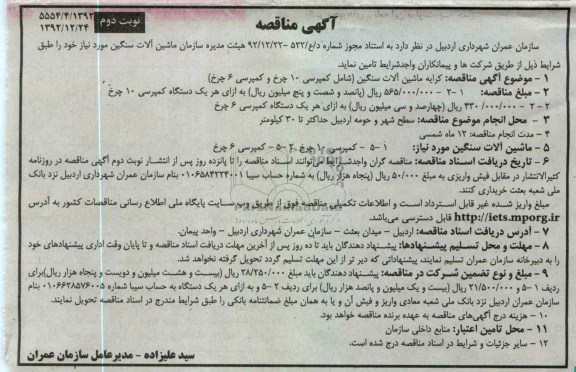 آگهی مناقصه
نوبت دوم
۵۵۵۴/۴/۱۳۹۲
۱۳۹۲/۱۲/۲۴
سازمان عمران شهرداری اردبیل در نظر دارد به استناد مجوز شماره د/ع/۵۲۲ -۹۲/۱۲/۲۲ هیئت مدیره سازمان ماشین آلات سنگین مورد نیاز خود را طبق
شرایط ذیل از طریق شرکت ها و پیمانکاران واجدشرایط تامین نماید.
۱ – موضوع آگهی مناقصه: کرایه ماشین آلات سنگین (شامل کمپرسی ۱۰ چرخ و کمپرسی ۶ چرخ)
۲ – مبلغ مناقصه: ۱ –۲ – ۵۶۵/۰۰۰/۰۰۰ ریال (پانصد و شصت و پنج میلیون ریال) به ازای هر یک دستگاه کمپرسی ۱۰ چرخ
۲ –۲ – ۴۳۰/۰۰۰/۰۰۰ ریال (چهارصد و سی میلیون ریال) به ازای هر یک دستگاه کمپرسی ۶ چرخ
۳ – محل انجام موضوع مناقصه: سطح شهر و حومه اردبیل حداکثر تا ۳۰ کیلومتر
۴ – مدت انجام مناقصه: ۱۲ ماه شمسی
۵ – ماشین آلات سنگین مورد نیاز: ۱ –۵ – کمپرسی ۱۰ چرخ ۲ –۵ – کمپرسی ۶ چرخ
۶ – تاریخ دریافت اسناد مناقصه: مناقصه گران واجدشرایط می‌توانند اسناد مناقصه را تا پانزده روز پس از انتشار نوبت دوم آگهی مناقصه در روزنامه
کثیرالانتشار در مقابل فیش واریزی به مبلغ ۵۰/۰۰۰ ریال (پنجاه هزار ریال) به شماره حساب سیبا ۰۱۰۶۵۸۴۲۲۴۰۰۱ بنام سازمان عمران شهرداری اردبیل نزد بانک
ملی شعبه بعثت خریداری کنند.
مبلغ واریز شده غیر قابل استرداد است و اطلاعات تکمیلی مناقصه فوق از طریق وب سایت پایگاه ملی اطلاع رسانی مناقصات کشور به آدرس
http://iets.mporg.ir قابل دسترسی می‌باشد.
۷ – آدرس دریافت اسناد مناقصه: اردبیل – میدان بعثت – سازمان عمران شهرداری اردبیل – واحد پیمان.
۸ – مهلت و محل تسلیم پیشنهادها: پیشنهاد دهندگان باید تا ده روز پس از آخرین مهلت دریافت اسناد مناقصه و تا پایان وقت اداری پیشنهادهای خود
را به دبیرخانه سازمان عمران تسلیم نمایند، پیشنهاداتی که دیر تر از این مهلت تسلیم گردد تحویل گرفته نخواهد شد.
۹ – مبلغ و نوع تضمین شرکت در مناقصه: پیشنهاد دهندگان باید مبلغ ۲۸/۲۵۰/۰۰۰ ریال (بیست و هشت میلیون و دویست و پنجاه هزار ریال)برای
ردیف ۱ –۵ و ۲۱/۵۰۰/۰۰۰ ریال (بیست و یک میلیون و پانصد هزار ریال) برای ردیف ۲ –۵ و به ازای هر یک دستگاه به حساب سیبا شماره ۰۱۰۶۶۲۸۵۷۶۰۰۵ بنام
سازمان عمران اردبیل نزد بانک ملی شعبه معادی واریز و فیش آن و یا به همان مبلغ ضمانتنامه بانکی را طبق شرایط مندرج در اسناد مناقصه تحویل نمایند.
۱۰ – هزینه درج آگهی‌های مناقصه به عهده برنده مناقصه خواهد بود.
۱۱ – محل تامین اعتبار: منابع داخلی سازمان
۱۲ – سایر جزئیات و شرایط در اسناد مناقصه درج شده است.
سید علیزاده – مدیرعامل سازمان عمران